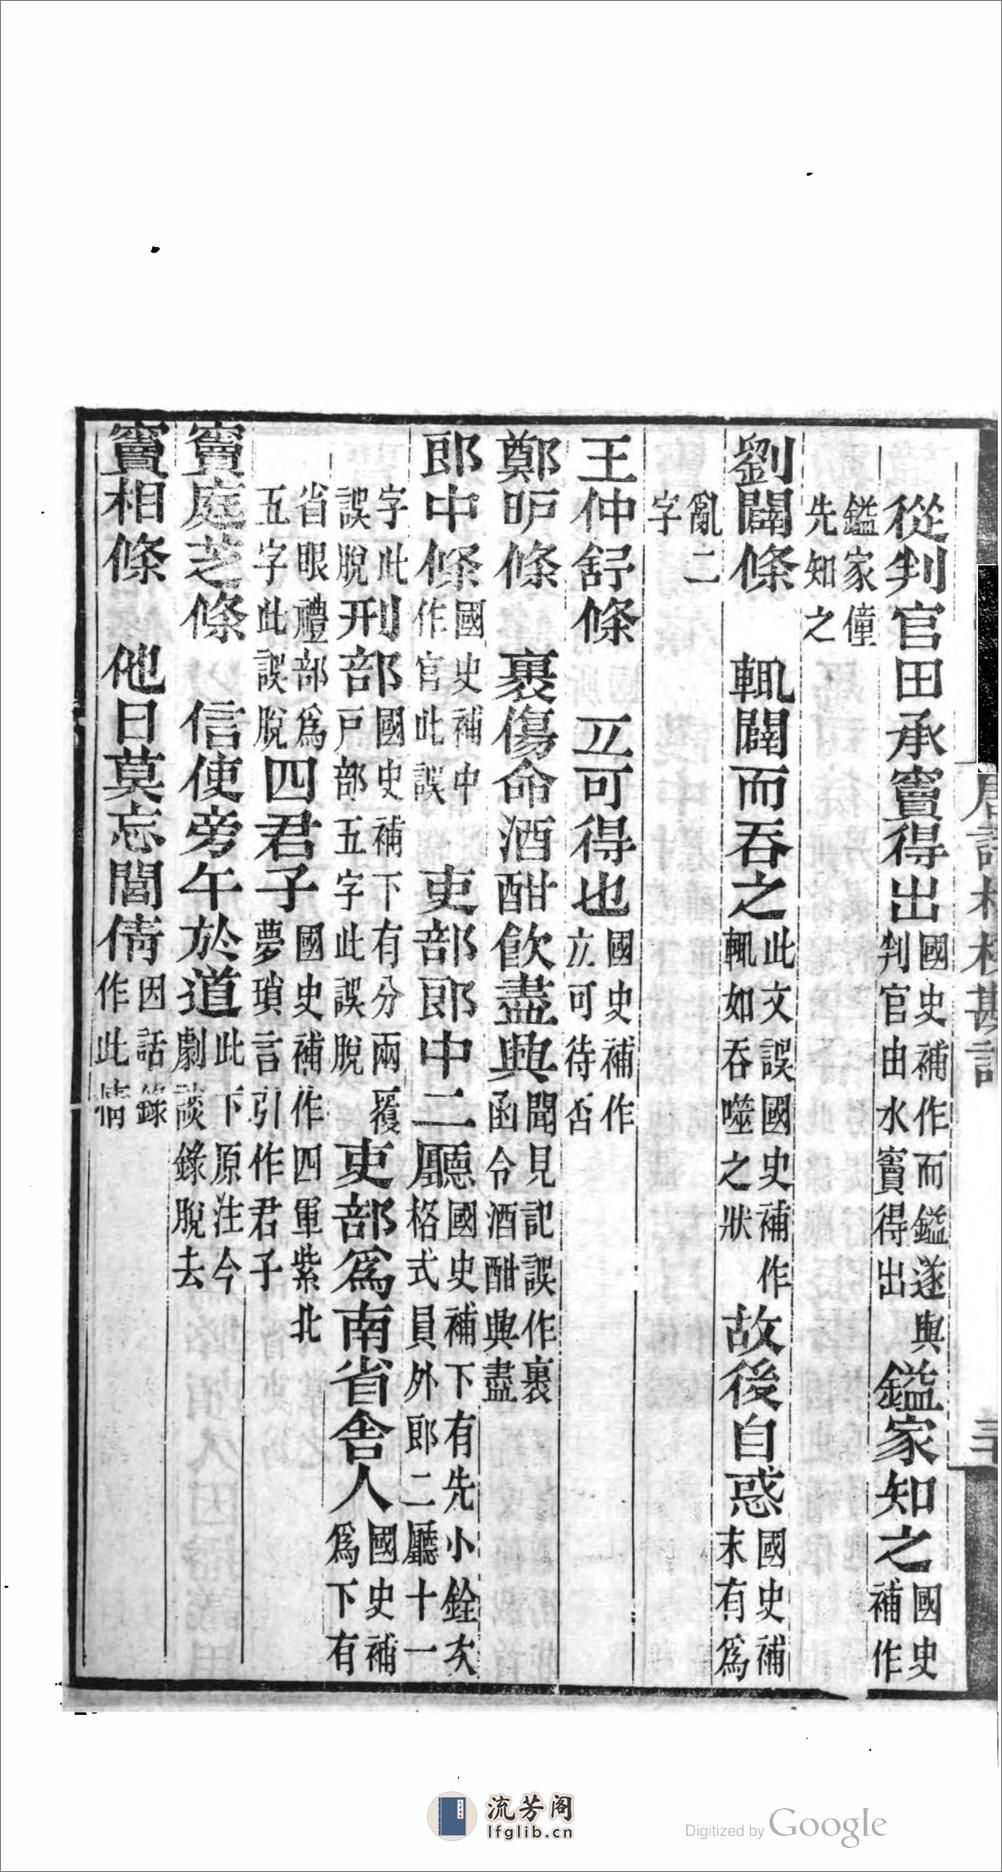 從判官田承竇得出國史補作而鎰遂與判官由水竇得出鎰家知之國史補作
鎰家僮先知之
劉闢條　輒闢而吞之此文誤國史補作輒如吞噬之狀故後自惑國史補末有爲
亂二字
王仲舒條　立可得也國史補作立可待否
鄭昈條　裹傷命酒酣飲盡興聞見記誤作裏函令酒酣興盡
郎中條國史補中作官此誤　吏部郎中二廳國史補下有先小銓次格式員外郎二廳十一
字此誤脫刑部國史補下有分兩覆戶部五字此誤脫吏部爲南省舍人國史補爲下有
省眼禮部爲五字此誤脫四君子國史補作四軍紫北夢瑣言引作君子
竇庭芝條　信使旁午於道此下原注今劇談錄脫去
竇相條　他日莫忘閭倩因話錄作此情
唐語林校勘記
流芳阁
lfglib.cn
Digitized by Google